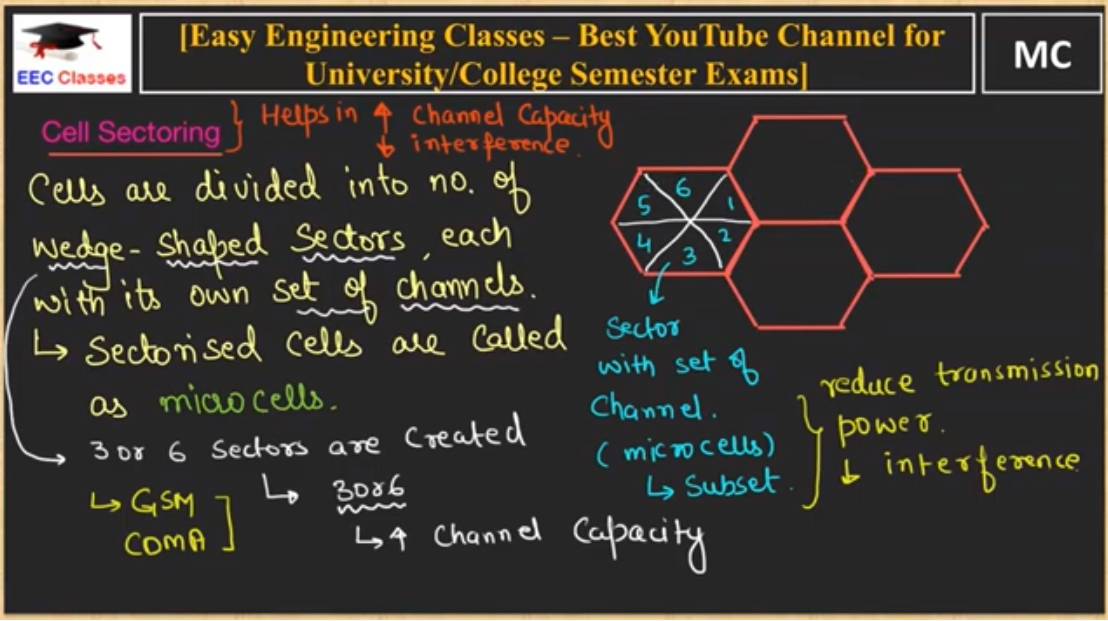 EEC Classes
[Easy Engineering Classes – Best YouTube Channel for
University/College Semester Exams]
MC
Cell Sectoring } Helps in ↑ Channel Capacity
↓ interference.
Cells are divided into no. of
wedge-shaped Sectors, each
with its own set of channels.
↳ Sectorised cells are called
as microcells.
3 or 6 Sectors are Created
↳ GSM
CDMA
↳ 3 or 6
↳ ↑ Channel Capacity
6
5
1
4
2
3
Sector
with set of
Channel.
(microcells)
↳ Subset.
reduce transmission
power.
↓ interference